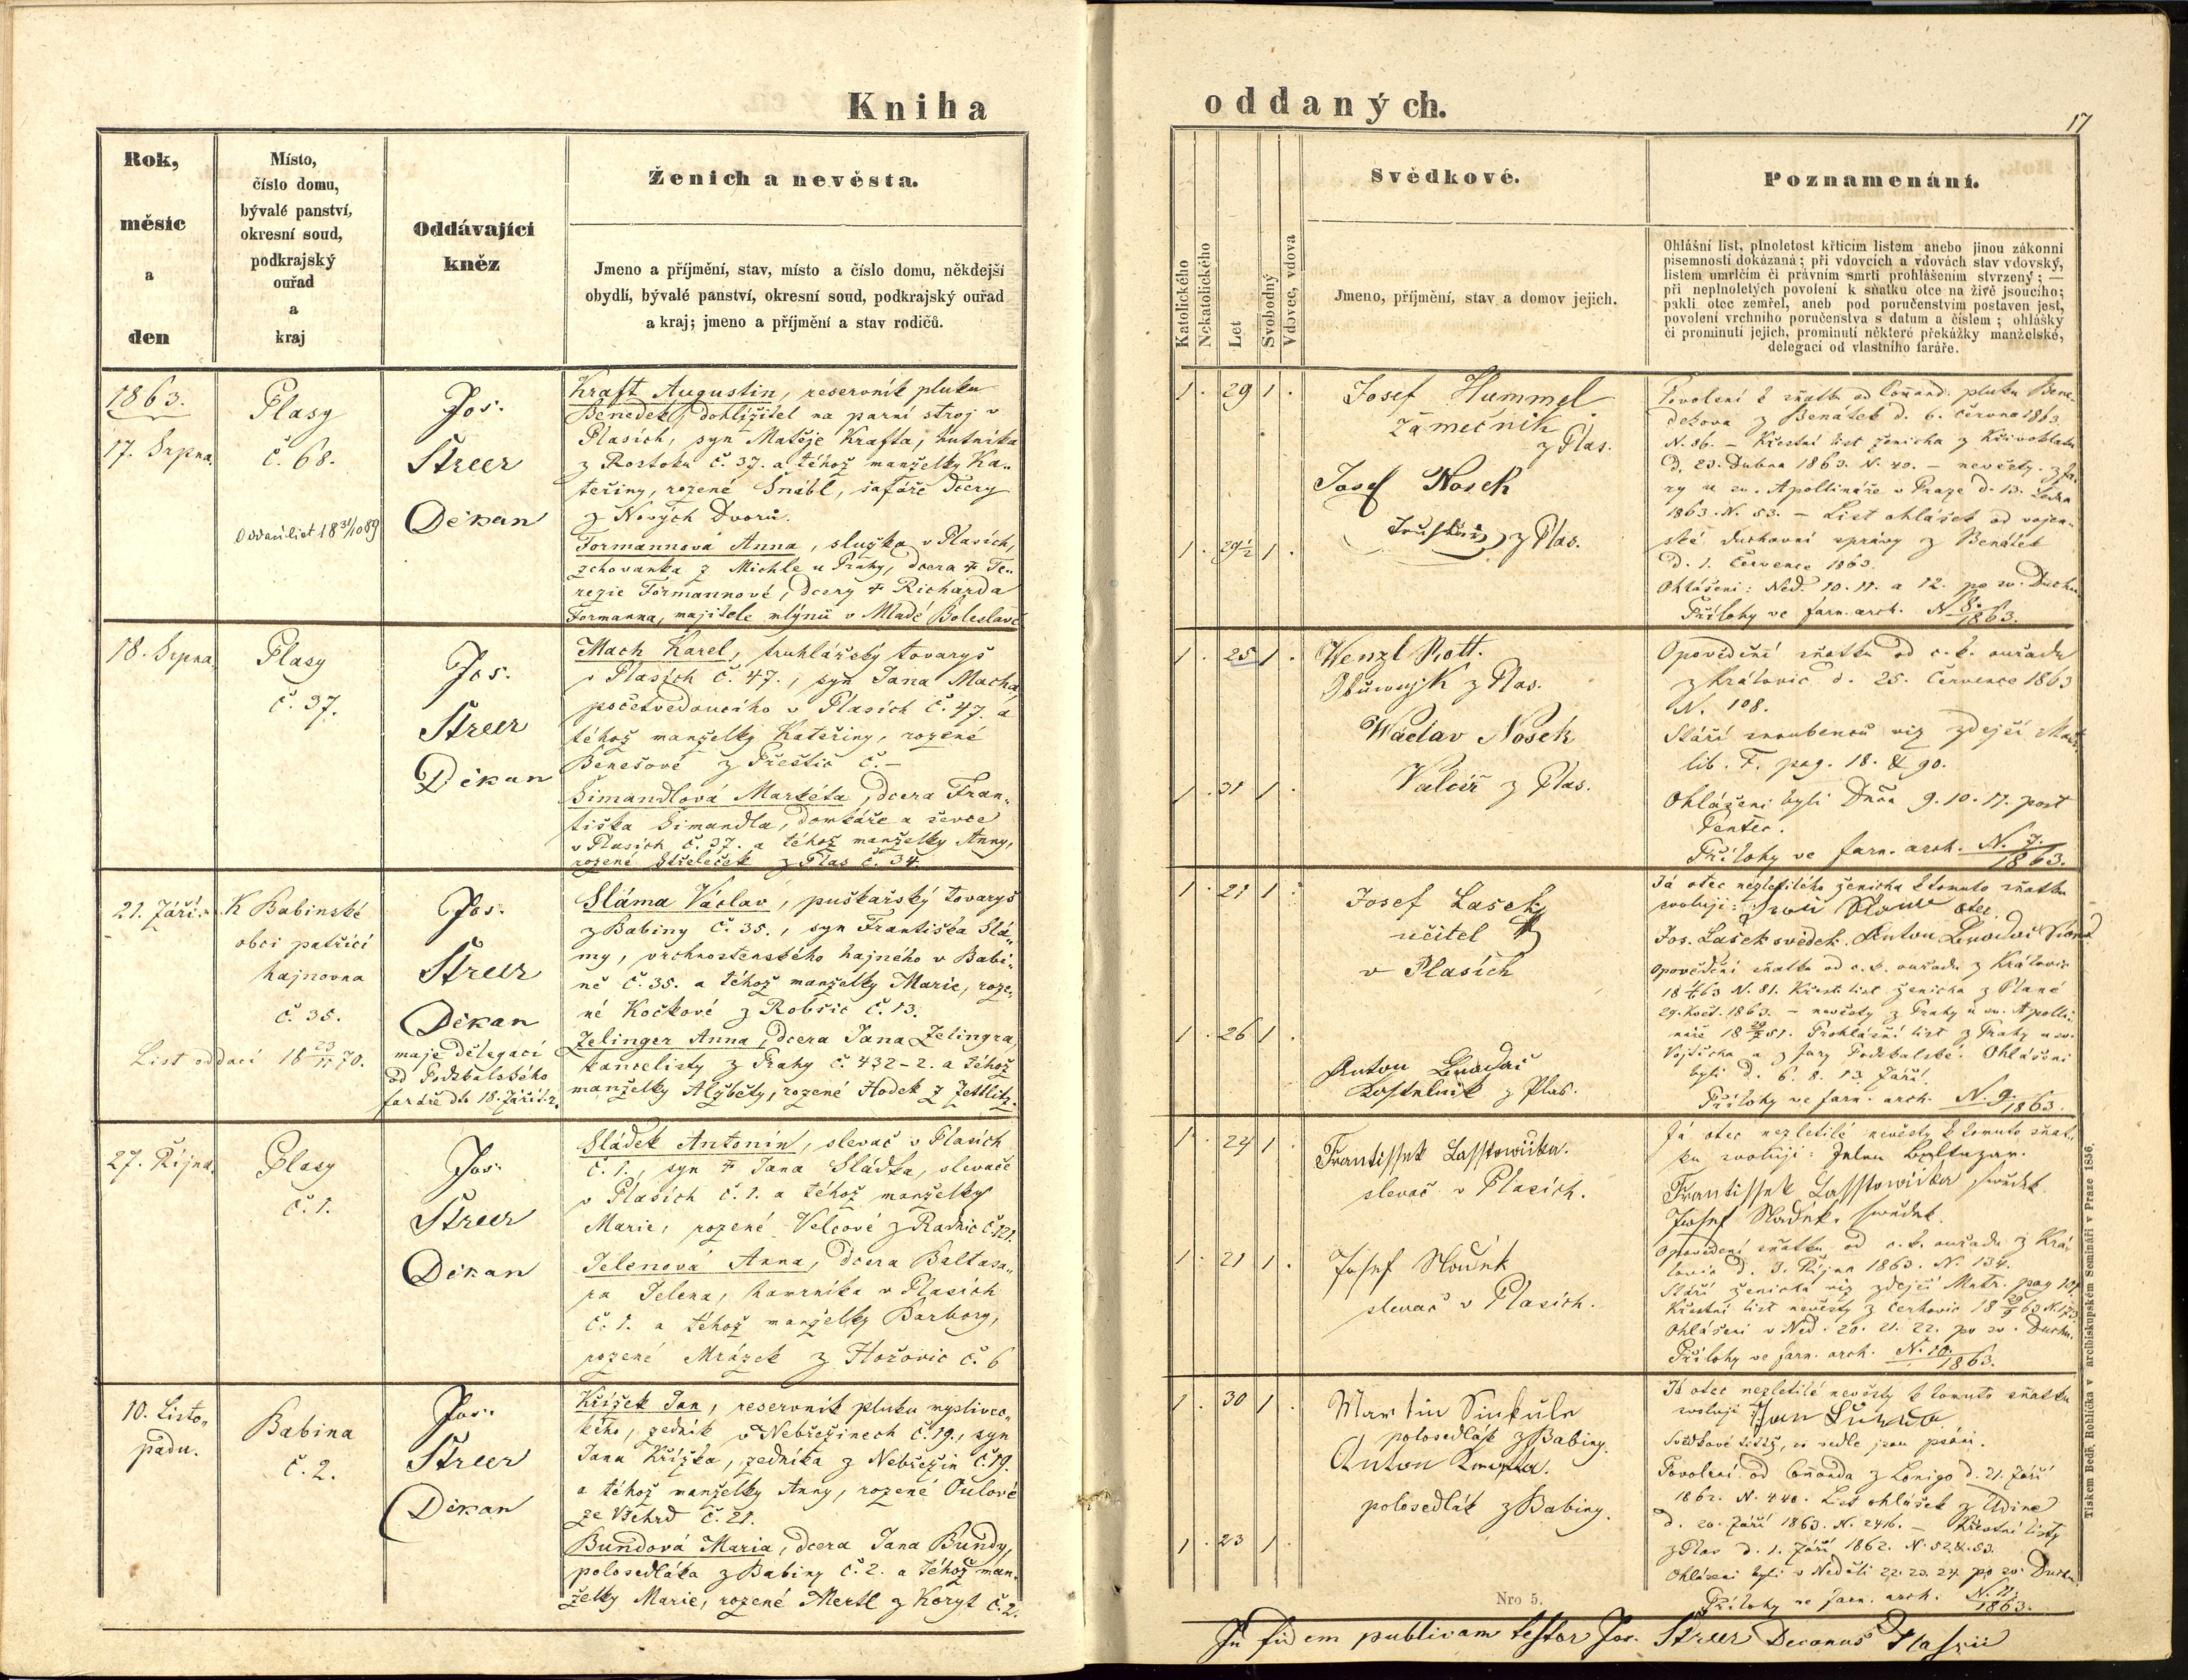 Kniha
oddaných.
17
Rok,
měsíc
a
den
Místo,
číslo domu,
bývalé panství,
okresní soud,
podkrajský
ouřad
a
kraj
Oddávající
kněz
Ženich a nevěsta.
Jmeno a příjmění, stav, místo a číslo domu, někdejší
obydlí, bývalé panství, okresní soud, podkrajský ouřad
a kraj; jmeno a příjmění a stav rodičů.
Katolického
Nekatolického
Let
Svobodný
Vdovec, vdova
Svědkové.
Jmeno, příjmění, stav a domov jejich.
Poznamenání.
Ohlášní list, plnoletost křticím listem anebo jinou zákonní
písemností dokázaná; při vdovcích a vdovách stav vdovský,
listem umrlčím či právním smrti prohlášením stvrzený; —
při neplnoletých povolení k sňatku otce na živě jsoucího;
pakli otec zemřel, aneb pod poručenstvím postaven jest,
povolení vrchního poručenstva s datum a číslem; ohlášky
či prominutí jejich, prominutí některé překážky manželské,
delegací od vlastního faráře.
1863.
17. Srpna.
Plasy
č. 68.
Oddací list 18 31/10 89
Jos.
Streer
Děkan
Kraft Augustin, reservník pluku
Benedek, dohlížitel na parní stroj v
Plasích, syn Matěje Krafta, hutníka
z Rostoku č. 37. a téhož manželky Ka„
teřiny, rozené Šnábl, šafáře dcery
z Nových Dvorů.
Formannová Anna, služka v Plasích,
schovanka z Michle u Prahy, dcera † Te„
rezie Formannové, dcery † Richarda
Formanna, majitele mlýnů v Mladé Boleslavě
1 . 29 1 .
1 . 29½ 1 .
Josef Hummel
Zámečnik
z Plas.
Josef Nosek
z Plas.
Povolení k sňatku od Command. pluku Bene„
dekova z Benátek d. 6. června 1863
N. 86. – Křestní list ženicha z Křivoklátu
d. 23. Dubna 1863. N. 40. – nevěsty z fa„
ry u sv. Apollináře v Praze d. 13. Ledna
1863. N. 53. – List ohlášek od vojen„
ské duchovní správy z Benátek
d. 1. Července 1863.
Ohlášeni: Ned. 10. 11. a 12. po sv. Duchu
Přílohy ve farn. arch. N. 8./1863.
18. Srpna.
Plasy
č. 37.
Jos.
Streer
Děkan
Mach Karel, truhlářský tovaryš
v Plasích č. 47., syn Jana Macha,
početvedoucího v Plasích č. 47. a
téhož manželky Kateřiny, rozené
Benešové z Přeštic č. –
Šimandlová Markéta, dcera Fran„
tiška Šimandla, domkáře a ševce
v Plasích č. 37. a téhož manželky Anny,
rozené Střeleček z Plas č. 34.
1 . 25 1 .
1 . 31 1 .
Wenzl Rott.
z Plas.
Wáclav Nosek
z Plas.
Opovědění sňatku od c. k. ouřadu
z Kralovic d. 25. Července 1863
N. 108.
Stáří snoubenců viz zdejší Matr.
lib. F. pag. 18. & 90.
Ohlášeni byli Dnča 9. 10. 11. post
Pentec.
Přílohy ve farn. arch. N. 7./1863.
21. Září.
K Babinské
obci patřící
hajnovna
č. 35.
List oddací 18 23/11 70.
Jos.
Streer
Děkan
maje delegaci
od Podskalského
faráře dto 18. Září t. r.
Sláma Václav, puškařský tovaryš
z Babiny č. 35., syn Františka Slá„
my, vrchnostenského hajného v Babi„
ně č. 35. a téhož manželky Marie, roze„
né Kočkové z Robšic č. 13.
Zelinger Anna, dcera Jana Zelingra,
kancelisty z Prahy č. 432-2. a téhož
manželky Alžběty, rozené Hodek z Zettlitz.
1 . 21 1 .
1 . 26 1 .
Josef Lasek
učitel
v Plasích
Anton
Kostelnik z Plas.
Já otec nezletilého ženicha k tomuto sňatku
svoluji: otec
Jos. Lašek svědek. Anton
Opovědění sňatku od c. k. ouřadu z Kralovic
N. 81. Křestní list ženicha z Plané
29. Květ. 1863. – nevěsty z Prahy u sv. Apolli„
náře Prohlášní list z Prahy u sv.
Vojtěcha a z fary Podskalské. Ohlášeni
byli d. 6. 8. 13. Září.
Přílohy ve farn. arch. N. 9./1863.
27. Října.
Plasy
č. 1.
Jos.
Streer
Děkan
Sládek Antonín, slevač v Plasích
č. 1., syn † Jana Sládka, slevače
v Plasích č. 1. a téhož manželky
Marie, rozené Velcové z Radnic č. 121.
Jelenová Anna, dcera Baltasa„
ra Jelena, havrníka v Plasích
č. 1. a téhož manželky Barbory,
rozené Mrázek z Hořovic č. 6
1 . 24 1 .
1 . 21 1 .
Frantissek Lasstowička.
slevač v Plasích.
Josef
slevač v Plasích.
Já otec nezletilé nevěsty k tomuto sňat„
ku svoluji: Jelen Baltazar.
Frantissek Lasstowička swědek
Josef swědek.
Opovědění sňatku od c. k. ouřadu z Kra„
lovic d. 3. Října 1863. N. 134.
Stáří ženicha viz zdejší Matr. pag
Křestní list nevěsty z
Ohlášeni v Ned. 20. 21. 22. po sv. Duchu.
Přílohy ve farn. arch. N. 10./1863.
10. Listo„
padu.
Babina
č. 2.
Jos.
Streer
Děkan
Křížek Jan, reservník pluku myslivec„
kého, zedník v Nebřežinech č. 19., syn
Jana Křížka, zedníka z Nebřežin č. 19.
a téhož manželky Anny, rozené Oulové
ze Všehrd č. 21.
Bundová Maria, dcera Jana Bundy,
polosedláka z Babiny č. 2. a téhož man„
želky Marie, rozené Mertl z Koryt č. 2.
1 . 30 1 .
1 . 23 1 .
Martin Sinkule
polosedlák z Babiny.
Anton
polosedlák z Babiny.
Já otec nezletilé nevěsty k tomuto sňatku
svoluji Jan
Svědkové titíž, co vedle jsou psáni.
Povolení od Commanda z Lonigo d. 21. Září
1862. N. 440. List ohlášek z Udine
d. 20. Září 1863. N. 2416. – Křestní listy
z Plas d. 1. Září 1862. N. 52 & 53.
Ohlášeni byli v Neděli 22. 23. 24. po sv. Duchu
Přílohy ve farn. arch. N. 11./1863.
Nro 5.
Tiskem Bedř. Rohlíčka v archibiskupském Semináři v Praze 1856.
In fidem publicam testor Jos. Streer Decanus Plassii